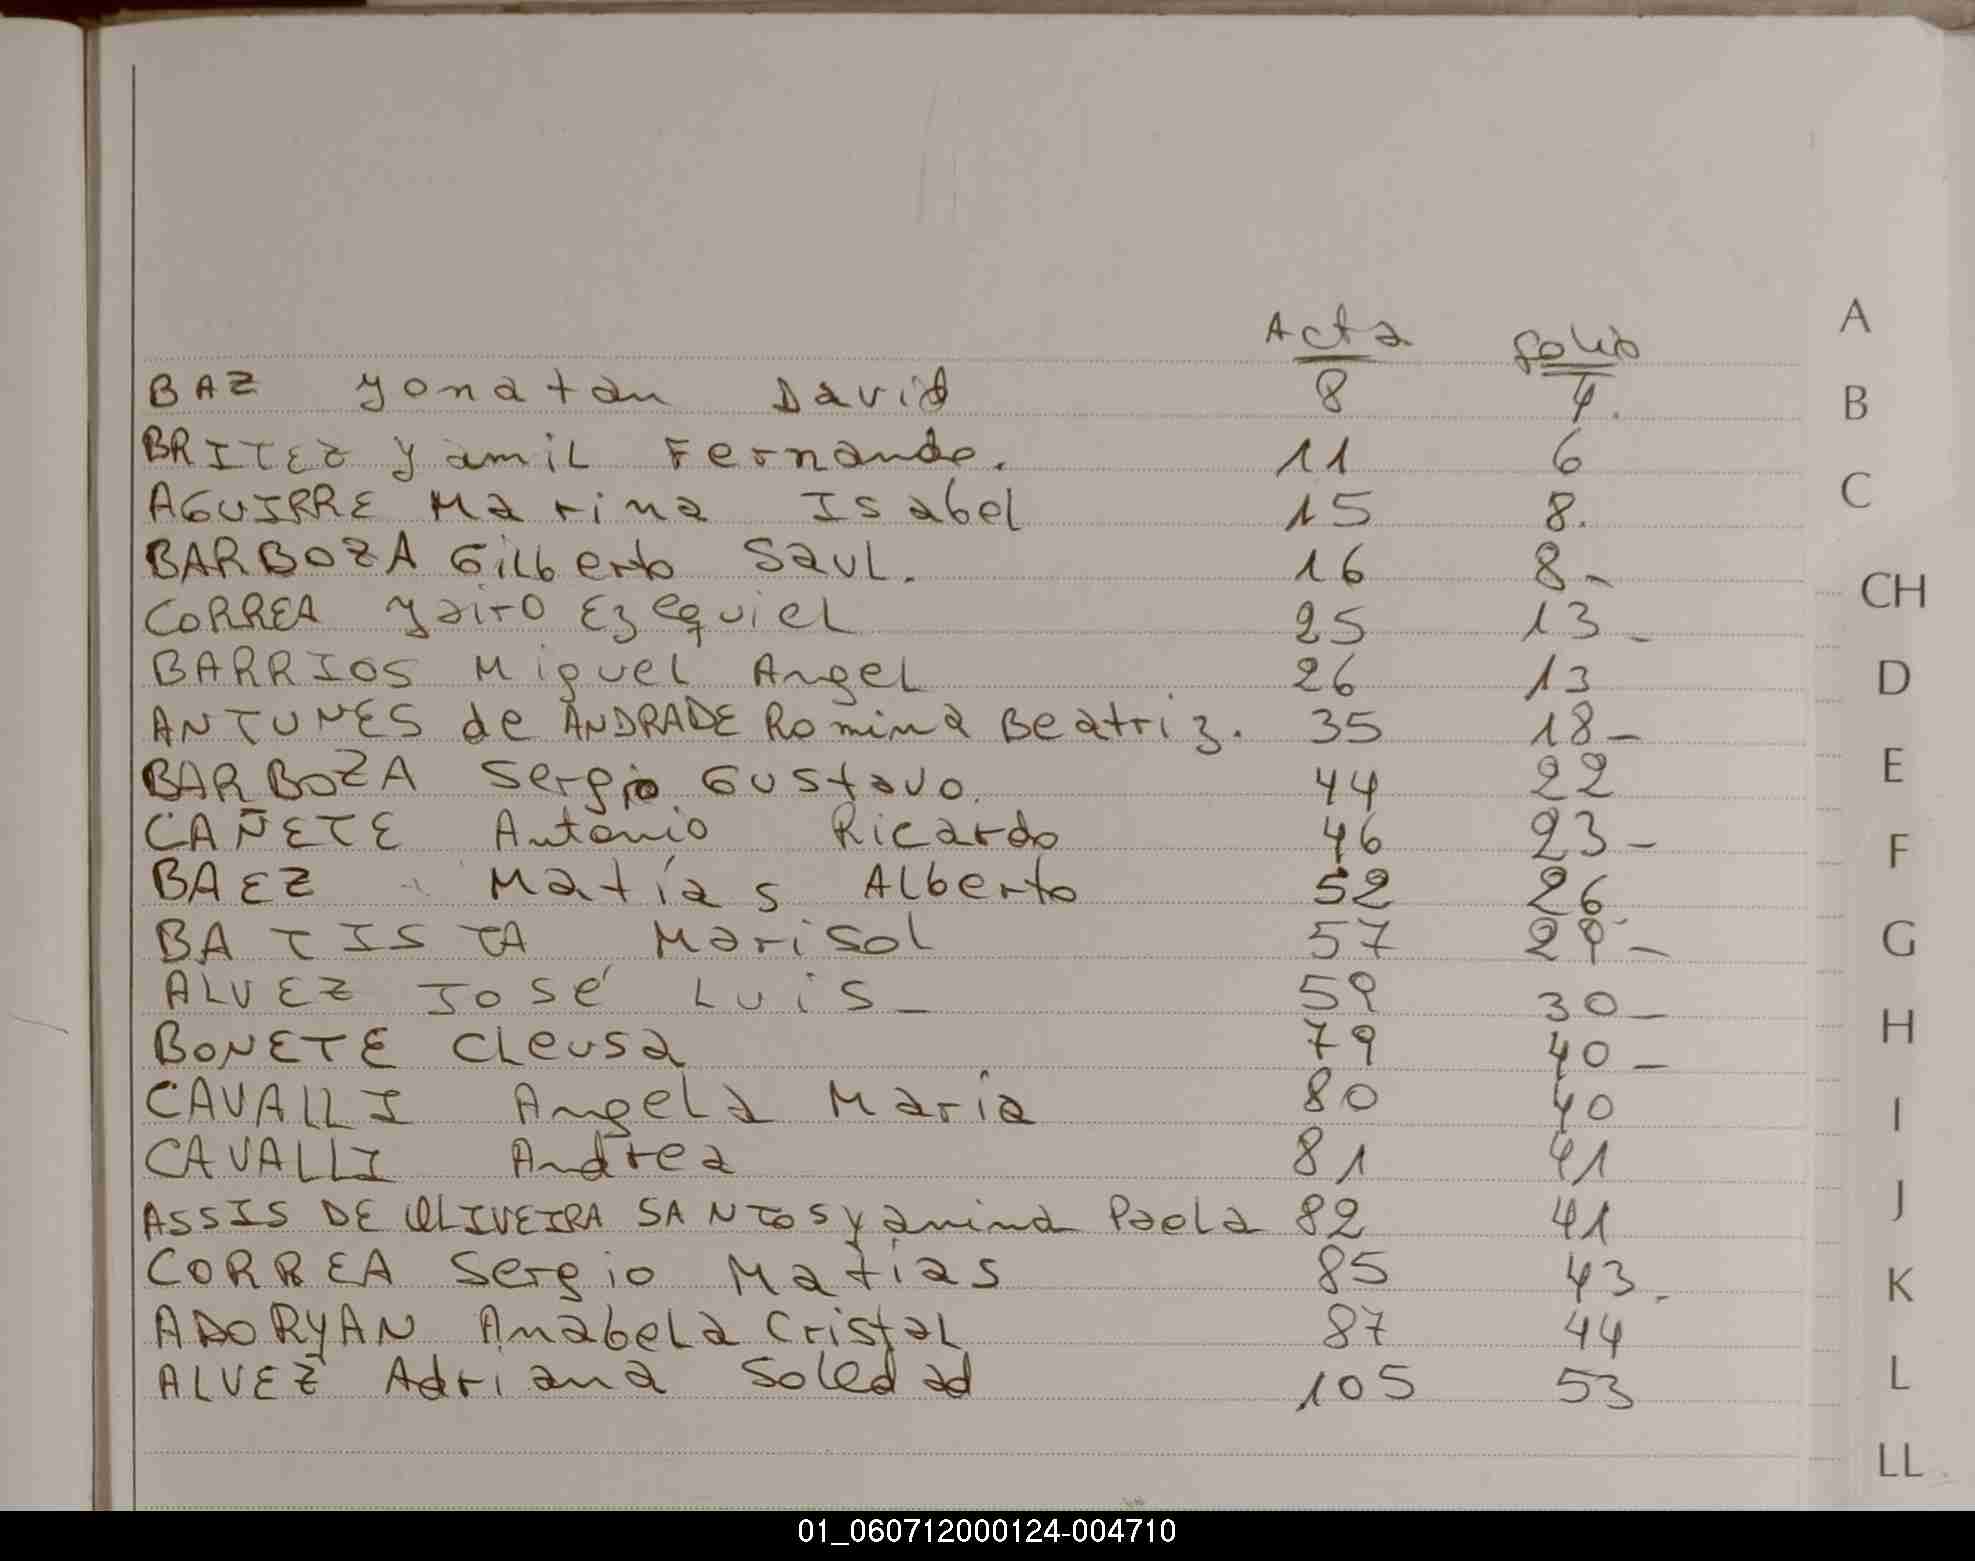 Acta folio
BAZ Yonatan David 8 4.
BRITEZ Yamil Fernando. 11 6
AGUIRRE Marina Isabel 15 8.
BARBOZA Gilberto Saul. 16 8-
CORREA Yairo Ezequiel 25 13-
BARRIOS Miguel Angel 26 13
ANTUNES de ANDRADE Romina Beatriz. 35 18-
BARBOZA Sergio Gustavo. 44 22
CAÑETE Antonio Ricardo 46 23-
BAEZ Matías Alberto 52 26
BATISTA Marisol 57 29-
ALVEZ José Luis- 59 30-
BONETE Cleusa 79 40-
CAVALLI Angela María 80 40
CAVALLI Andrea 81 41
ASSIS DE OLIVEIRA SANTOS Yanina Paola 82 41
CORREA Sergio Matías 85 43-
ADORYAN Anabela Cristal 87 44
ALVEZ Adriana Soledad 105 53
A
B
C
CH
D
E
F
G
H
I
J
K
L
LL
01_060712000124-004710